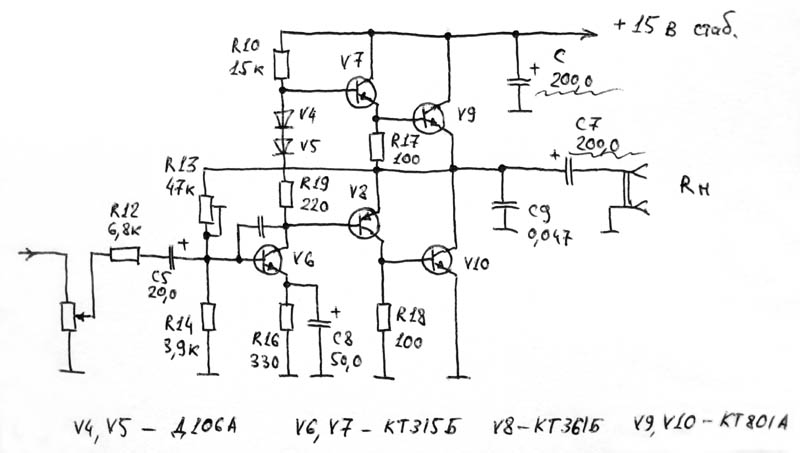 +15 В стаб.
R10
15к
V7
+ C
200,0
V4
V9
C7
+ 200,0
V5
R17
100
R13
47к
R19
220
V8
Rн
R12
6,8к
C9
0,047
+
C5
20,0
V6
V10
R14
3,9к
R16
330
+
C8
50,0
R18
100
V4, V5 – Д106А V6, V7 – КТ315Б V8 – КТ361Б V9, V10 – КТ801А